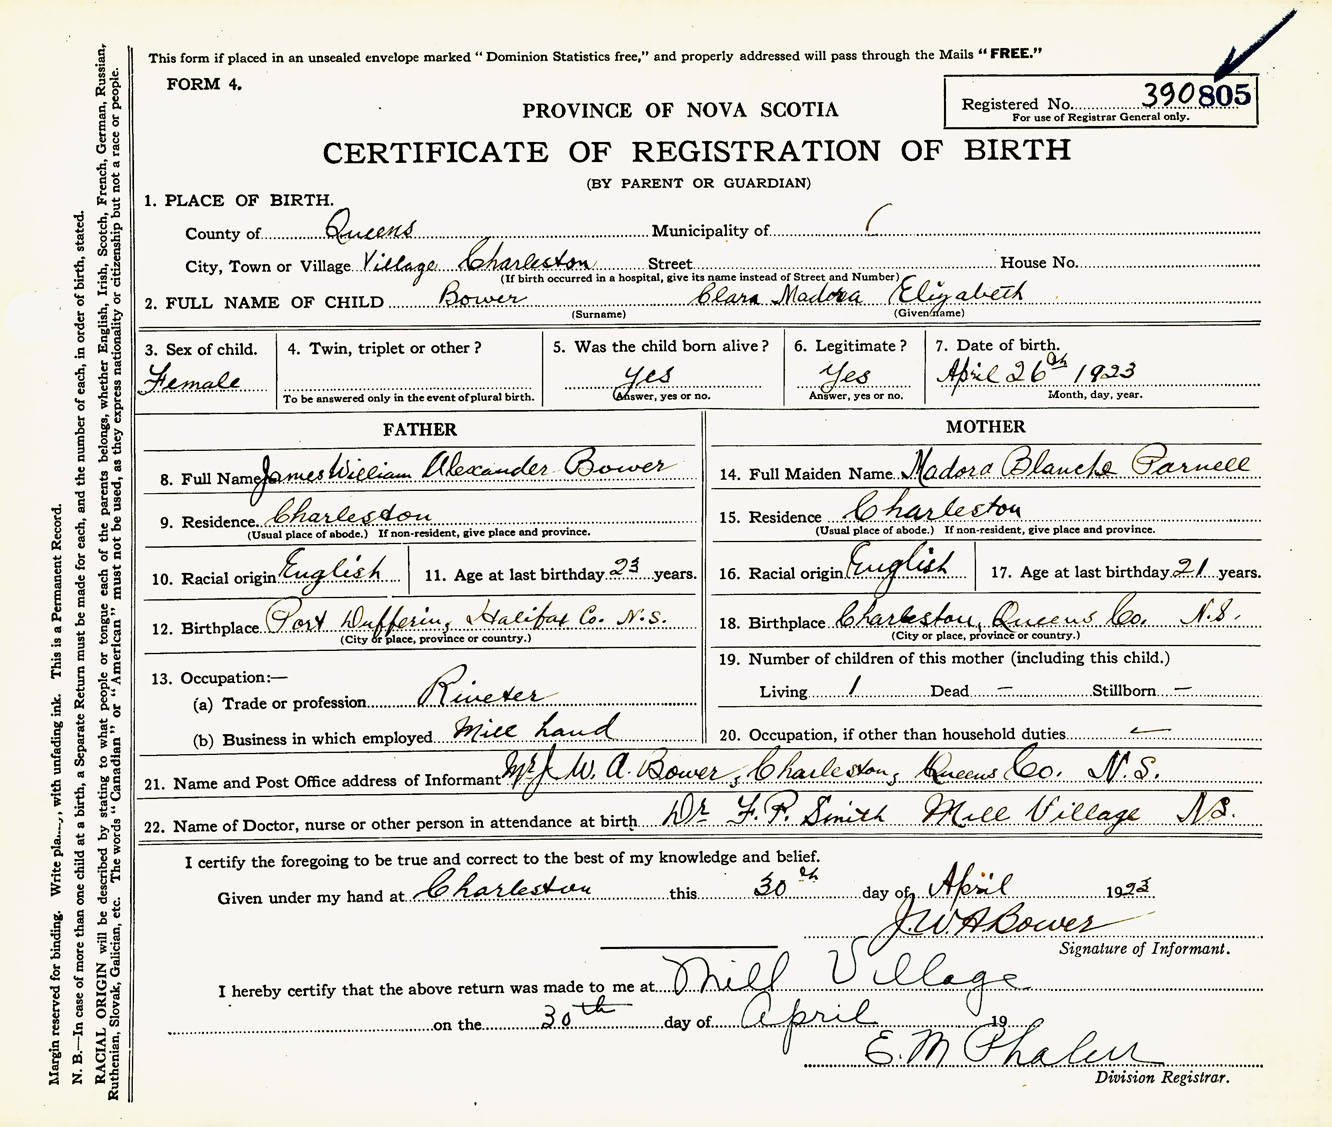 This form if placed in an unsealed envelope marked "Dominion Statistics free," and properly addressed will pass through the Mails "FREE."
FORM 4.
Registered No. 390805
For use of Registrar General only.
PROVINCE OF NOVA SCOTIA
CERTIFICATE OF REGISTRATION OF BIRTH
(BY PARENT OR GUARDIAN)
1. PLACE OF BIRTH.
County of Queens Municipality of
City, Town or Village Village Charleston Street House No.
(If birth occurred in a hospital, give its name instead of Street and Number)
2. FULL NAME OF CHILD Bower Clara Madora Elizabeth
(Surname) (Given name)
3. Sex of child. 4. Twin, triplet or other? 5. Was the child born alive? 6. Legitimate? 7. Date of birth.
Female yes Yes April 26th 1923
To be answered only in the event of plural birth. Answer, yes or no. Answer, yes or no. Month, day, year.
FATHER
8. Full Name James William Alexander Bower
9. Residence Charleston
(Usual place of abode.) If non-resident, give place and province.
10. Racial origin English 11. Age at last birthday 23 years.
12. Birthplace Port Dufferin, Halifax Co. N.S.
(City or place, province or country.)
13. Occupation:—
(a) Trade or profession Riveter
(b) Business in which employed Mill hand
MOTHER
14. Full Maiden Name Madora Blanche Parnell
15. Residence Charleston
(Usual place of abode.) If non-resident, give place and province.
16. Racial origin English 17. Age at last birthday 21 years.
18. Birthplace Charleston, Queens Co. N.S.
(City or place, province or country.)
19. Number of children of this mother (including this child.)
Living 1 Dead — Stillborn —
20. Occupation, if other than household duties —
21. Name and Post Office address of Informant Mr J. W. A. Bower, Charleston, Queens Co. N.S.
22. Name of Doctor, nurse or other person in attendance at birth Dr F. P. Smith Mill Village NS.
I certify the foregoing to be true and correct to the best of my knowledge and belief.
Given under my hand at Charleston this 30th day of April 1923
J. W. A Bower
Signature of Informant.
I hereby certify that the above return was made to me at Mill Village
on the 30th day of April 19
E. M Phalen
Division Registrar.
Margin reserved for binding. Write pla....., with unfading ink. This is a Permanent Record.
N. B.—In case of more than one child at a birth, a Separate Return must be made for each, and the number of each, in order of birth, stated.
RACIAL ORIGIN will be described by stating to what people or tongue each of the parents belongs, whether English, Irish, Scotch, French, German, Russian,
Ruthenian, Slovak, Galician, etc. The words "Canadian" or "American" must not be used, as they express nationality or citizenship but not a race or people.